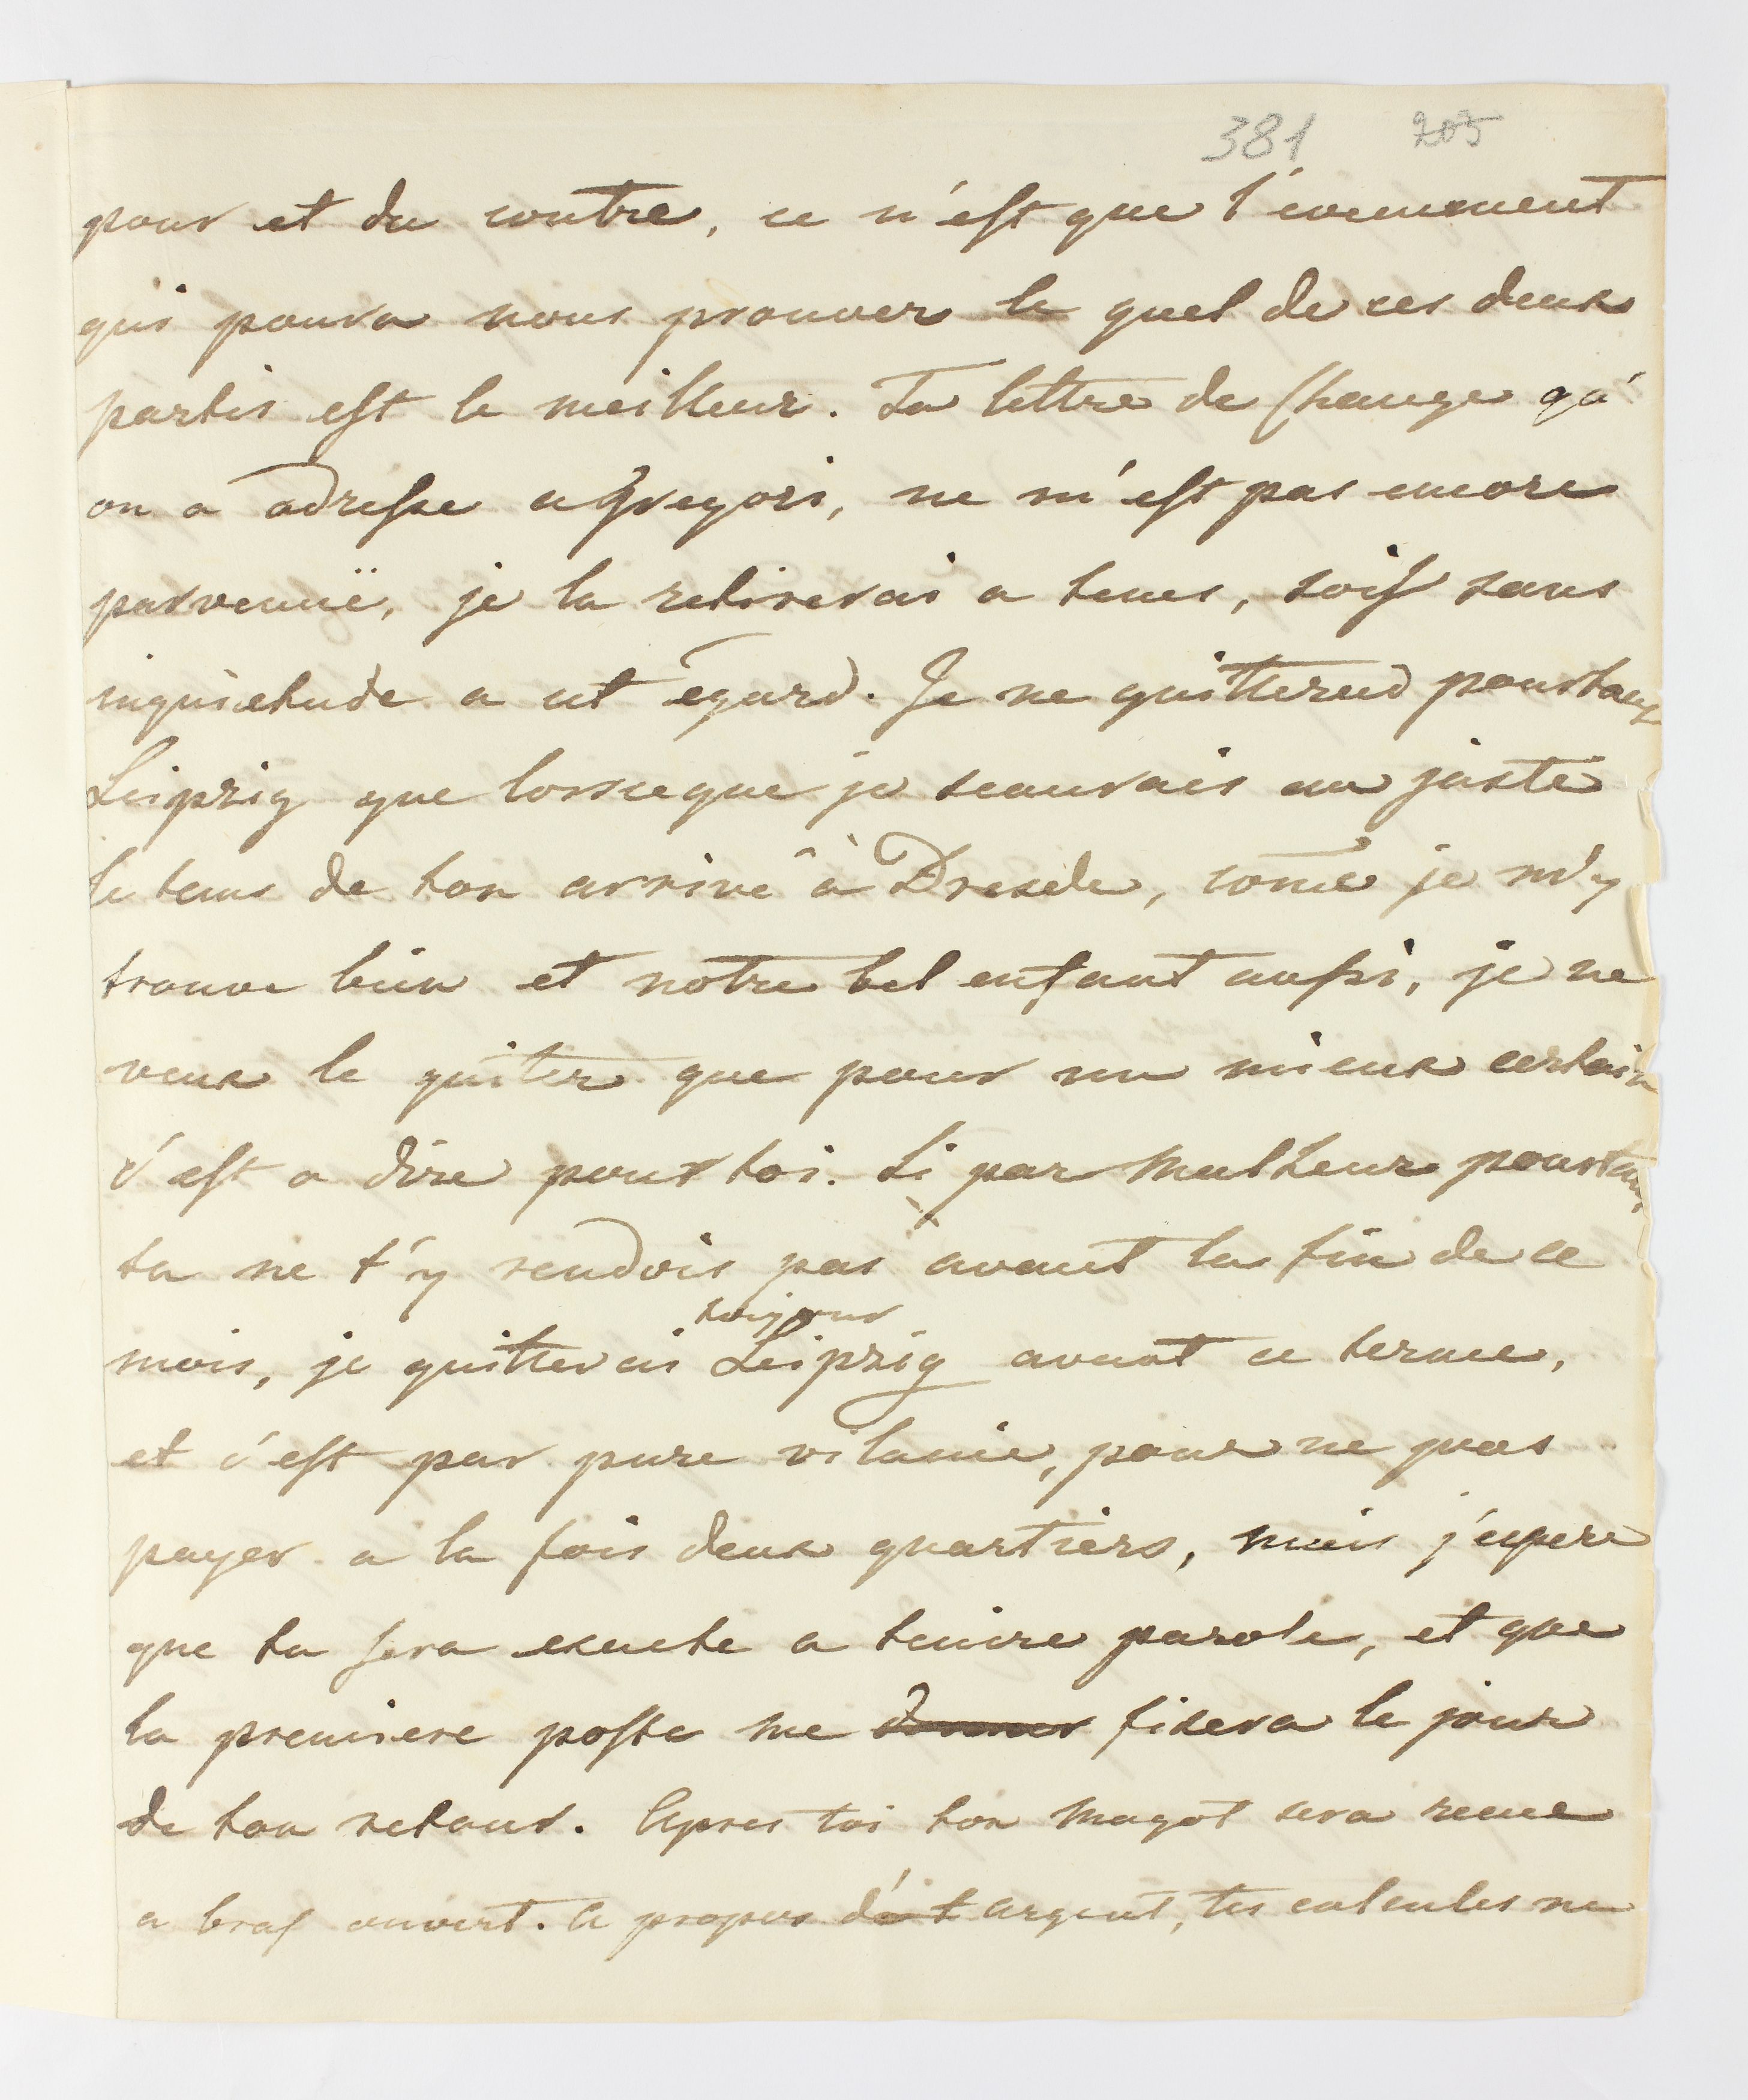 381 205
pour et du contre, ce n'est que l'evenement
qui poura nous prouver le quel de ces deux
partis est le meilleur. Ta lettre de Change qu'
on a adresse a Gregori, ne m'est pas encore
parvenuë, je la retirerai a tems, soi sans
inquietude a cet egard. Je ne quitterud pourtant
Leipzig que lorsceque je scaurais au juste
le tems de ton arrivé à Dresde, come je m'y
trouve bien et notre bel enfant aussi, je ne
veux le quiter que pour un mieux certain
c'est a dire pour toi. Si par malheur pourtant
tu ne t'y rendois pas avant la fin de ce
toujour
mois, je quitterais Leipzig avant ce terme,
et c'est par pure vilanie, pour ne pas
payer a la fois deux quartiers, mais j'espere
que tu sera exacte a tenire parole, et que
la premiere poste me donner fixera le jour
de ton retour. Apres toi ton magot sera recue
a bras ouvert. A propos d'argent, tes calcules ne